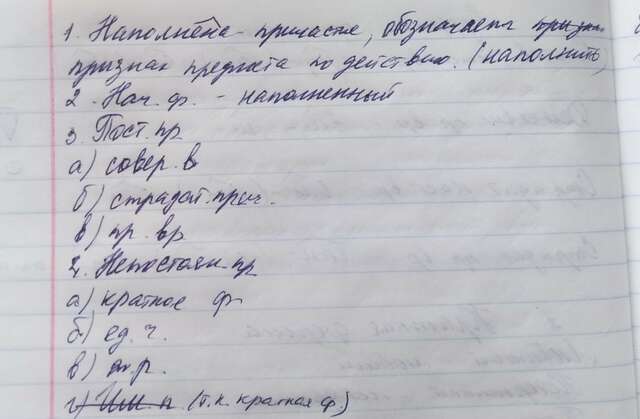 1. Наполнена - причастие, обозначает призн
признак предмета по действию. (наполнить)
2. Нач. ф. - наполненный
3. Пост. пр
а) совер. в
б) страдат. прич.
в) пр. вр
4. Непостоян. пр
а) краткое ф
б) ед. ч.
в) ж. р.
г) Им. п. (т.к. краткая ф)